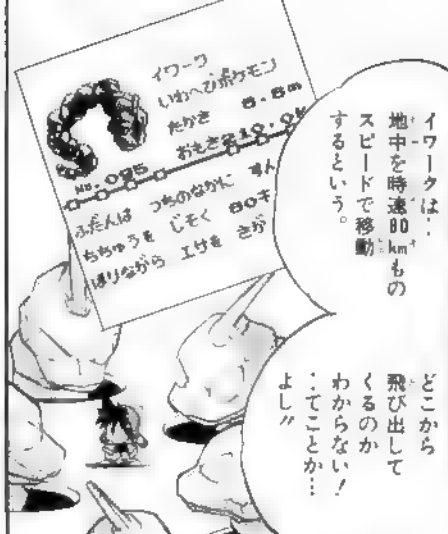 イワーク
いわへびポケモン
たかさ 8.8m
おもさ 210.0
No.095
ふだんは つちのなかに すん
ちちゅうを じそく 80キ
ほりながら エサを さが
イワークは‥
地中を時速80kmもの
スピードで移動
するという。
どこから
飛び出して
くるのか
わからない!
‥てことか…
よし!!